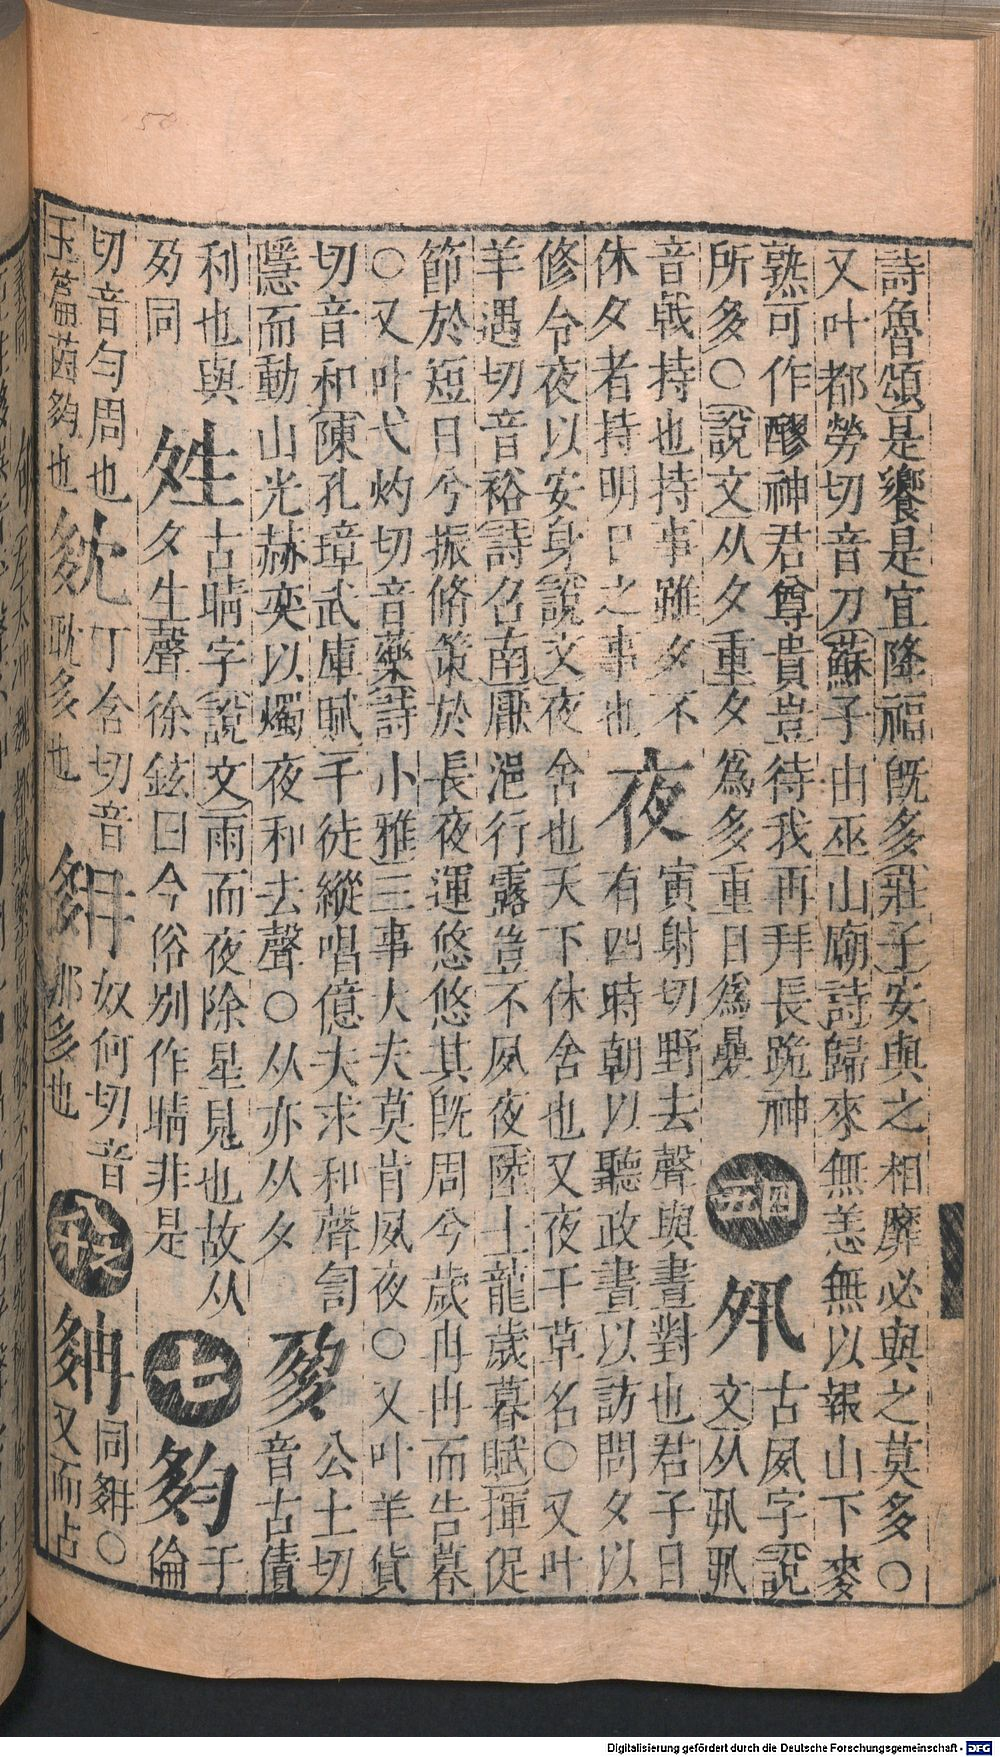 詩魯頌是饗是宜降福既多莊子安與之相靡必與之莫多○
又叶都勞切音刀蘇子由巫山廟詩歸來無恙無以報山下麥
熟可作醪神君尊貴豈待我再拜長跪神
所多○說文从夕重夕為多重日為曡
四畫
夙
古夙字說
文从丮丮
音戟持也持事雖夕不
休夕者持明日之事也
夜
寅射切野去聲與晝對也君子日
有四時朝以聽政晝以訪問夕以
修令夜以安身說文夜舍也天下休舍也又夜干草名○又叶
羊遇切音裕詩召南厭浥行露豈不夙夜陸士龍歲暮賦揮促
節於短日兮振脩策於長夜運悠悠其既周兮歲冉冉而告暮
○又叶弋灼切音藥詩小雅三事大夫莫肯夙夜○又叶羊貨
切音和陳孔璋武庫賦千徒縱唱億夫求和聲訇
隱而動山光赫奕以燭夜和去聲○从亦从夕
㚌
公土切
音古債
利也與
夃同
夝
古晴字說文雨而夜除星見也故从
夕生聲徐鉉曰今俗別作晴非是
七
夠
于
倫
切音勻周也
玉篇㚡夠也
㚜
丁含切音
耽多也
㚡
奴何切音
那多也
㚡
同㚡○
又而占
Digitalisierung gefördert durch die Deutsche Forschungsgemeinschaft - DFG